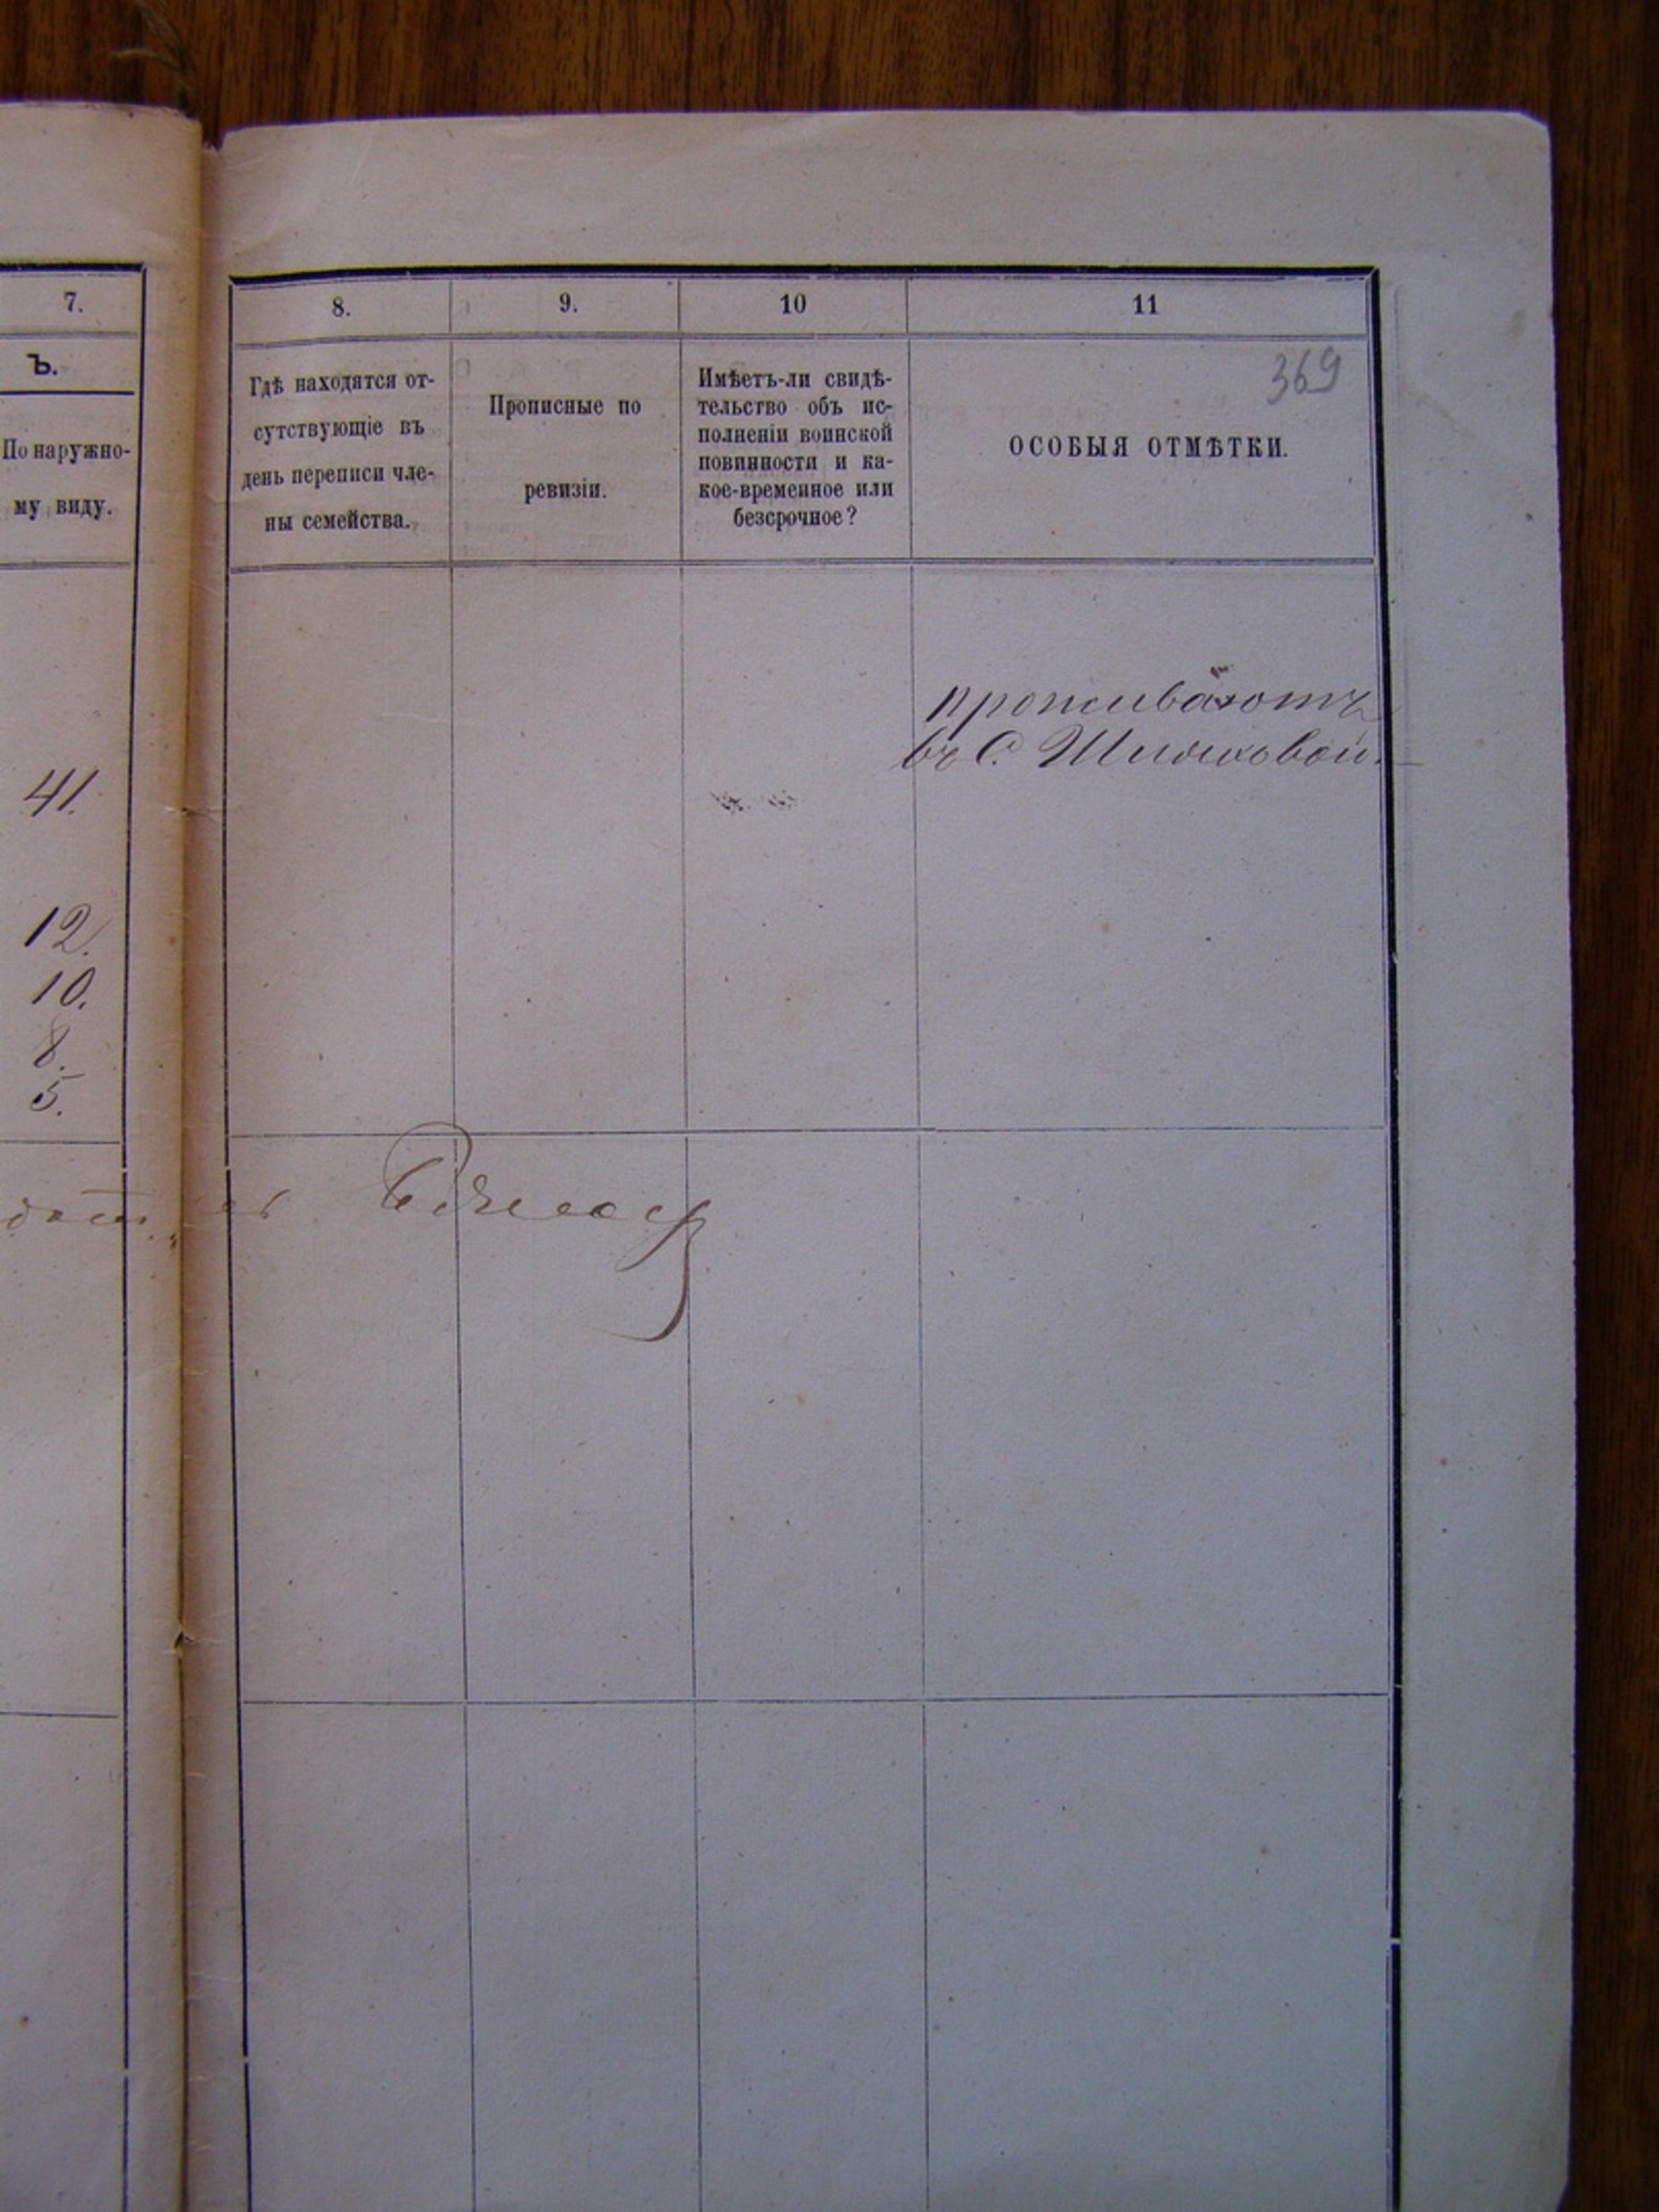 7.
ъ.
По наружно-
му виду.
41.
12.
10.
8.
5.
8.
9.
10
11
369
Гдѣ находятся от-
сутствующіе въ
день переписи чле-
ны семейства.
Прописные по
ревизіи.
Имѣетъ-ли свидѣ-
тельство объ ис-
полненіи воинской
повинности и ка-
кое-временное или
безсрочное?
ОСОБЫЯ ОТМѢТКИ.
проживаютъ
въ С.